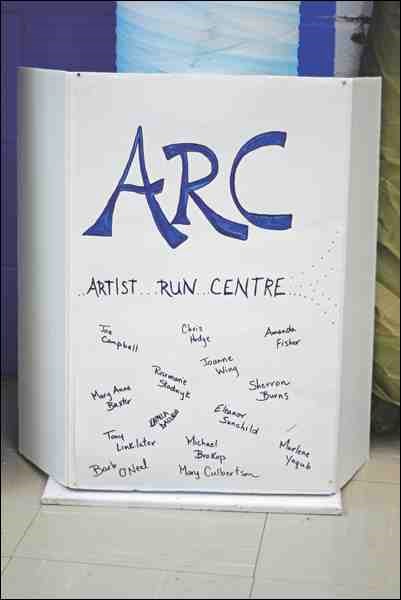 ARC
..ARTIST...RUN...CENTRE...
Joe
Campbell
Chris
Hodge
Amanda
Fisher
Joanne
Wing
Rosmarie
Stadnyk
Mary Anne
Baxter
Sherron
Burns
Eleanor
Sunchild
Tony
Linklater
Michael
Brokop
Marlene
Yaqub
Barb O'Neel
Mary Culbertson